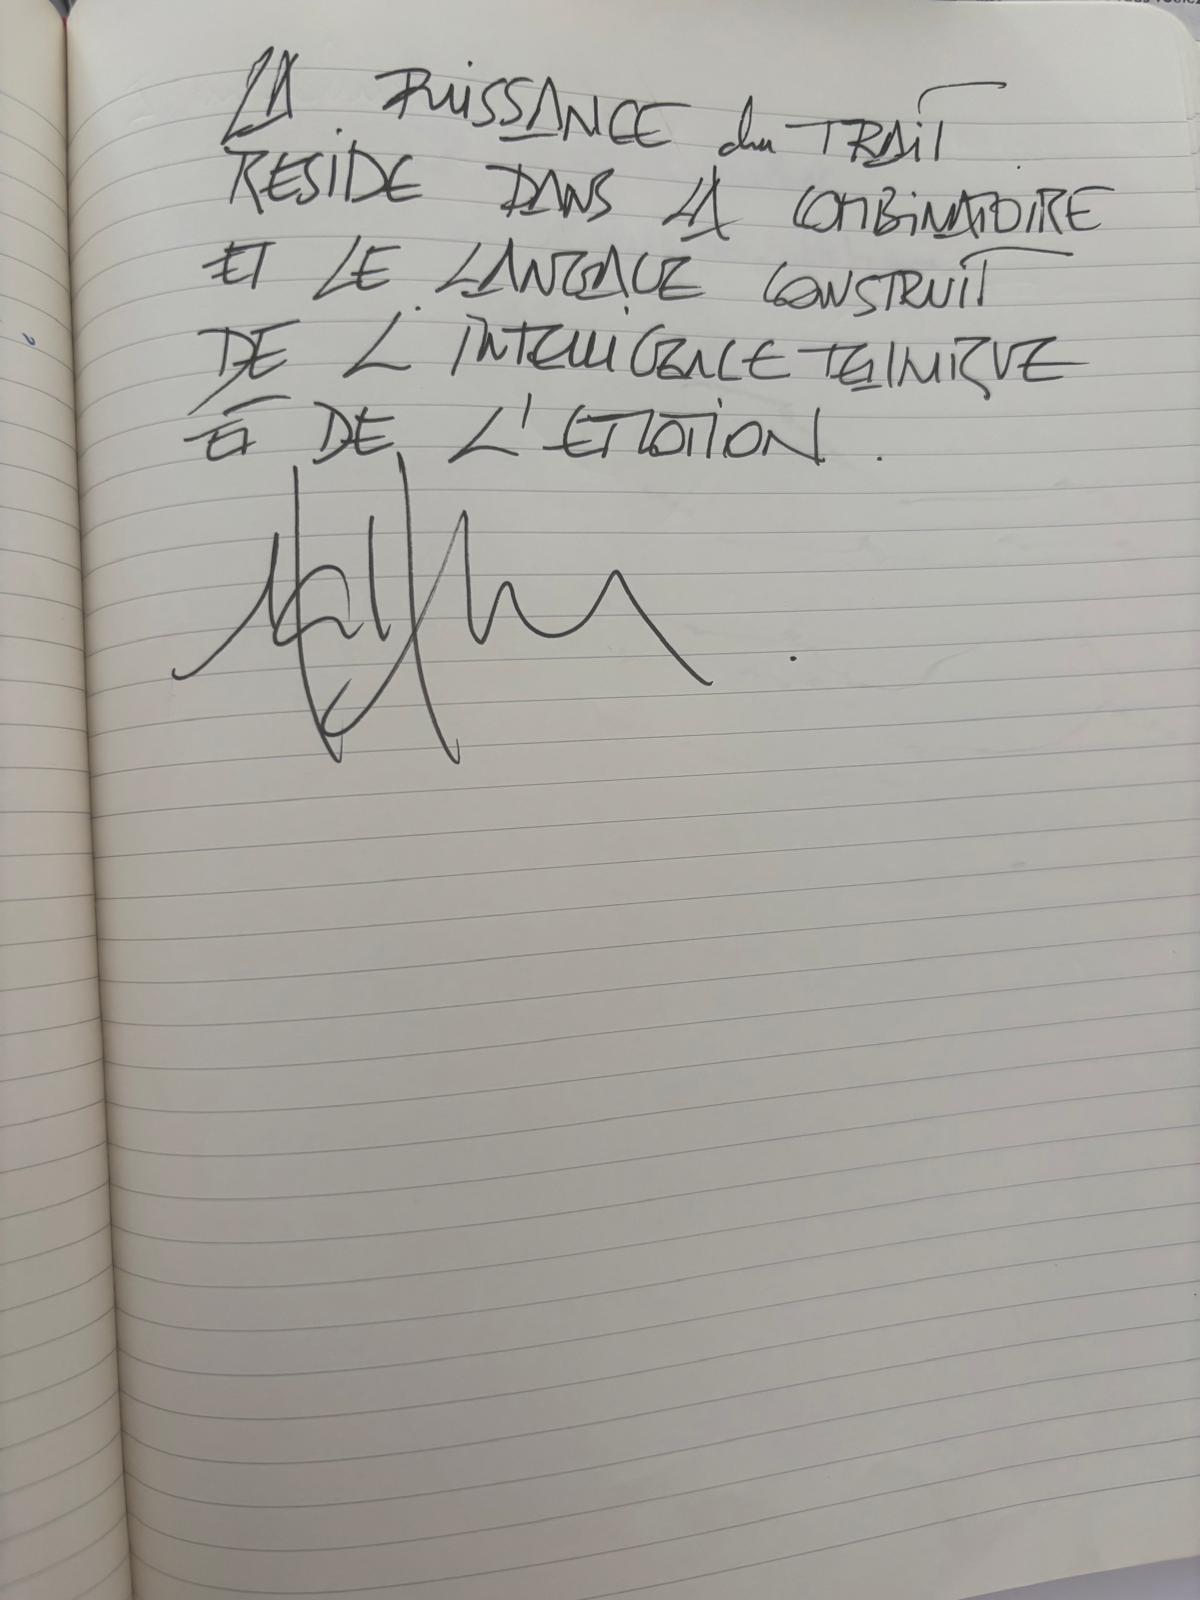 LA PUISSANCE du TRAIT
RESIDE DANS LA COMBINATOIRE
ET LE LANGAGE CONSTRUIT
DE L'INTELLIGENCE TECHNIQUE
ET DE L'EMOTION.